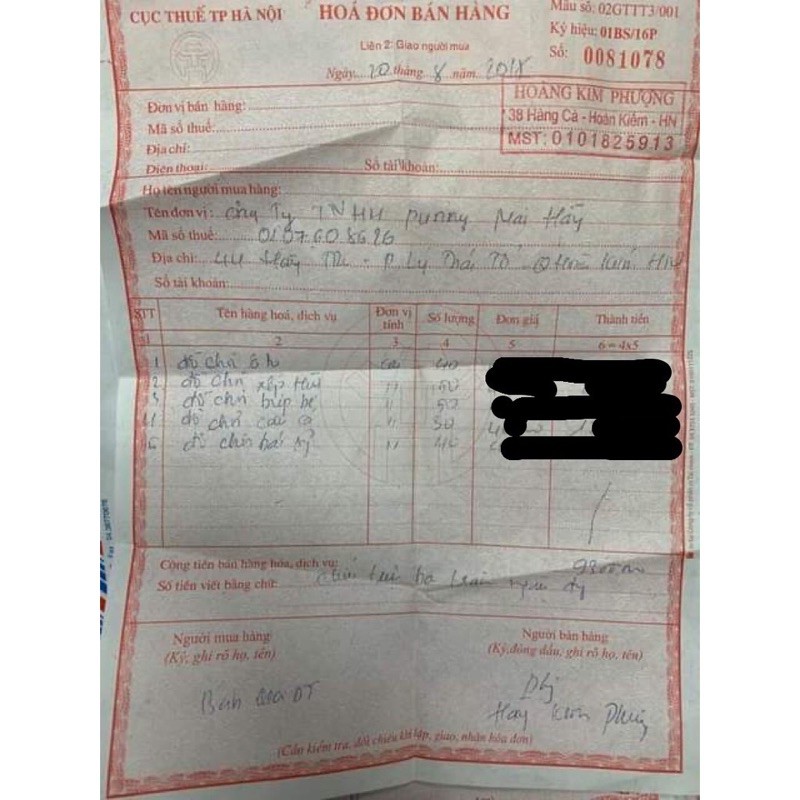 CỤC THUẾ TP HÀ NỘI
HOÁ ĐƠN BÁN HÀNG
Mẫu số: 02GTTT3/001
Ký hiệu: 01BS/16P
Liên 2: Giao người mua
Số: 0081078
Ngày 20 tháng 8 năm 2018
HOÀNG KIM PHƯỢNG
38 Hàng Cá - Hoàn Kiếm - HN
MST: 0101825913
Đơn vị bán hàng:
Mã số thuế:
Địa chỉ:
Điện thoại: Số tài khoản:
Họ tên người mua hàng:
Tên đơn vị: Công Ty TNHH
Mã số thuế: 0107608626
Địa chỉ: 44 P Lý Thái Tổ
Số tài khoản:
STT Tên hàng hoá, dịch vụ Đơn vị tính Số lượng Đơn giá Thành tiền
1 2 3 4 5 6 = 4x5
1 đồ chơi 40
2 đồ chơi xếp hình " 50
3 đồ chơi búp bê " 50
4 đồ chơi câu cá " 30
5 đồ chơi " 40
Cộng tiền bán hàng hóa, dịch vụ:
Số tiền viết bằng chữ:
Người mua hàng
(Ký, ghi rõ họ, tên)
Người bán hàng
(Ký,đóng dấu, ghi rõ họ, tên)
(Cần kiểm tra, đối chiếu khi lập, giao, nhận hóa đơn)